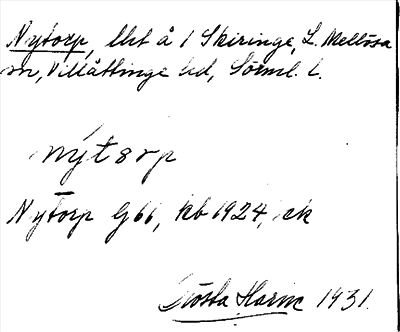 Nytorp, lht å 1 Skiringe, L. Mellösa
sn, Villåttinge hd, Sörml. l.
nýtorp
Nytorp G66, kb 1924, ek
Gösta Harin 1931.